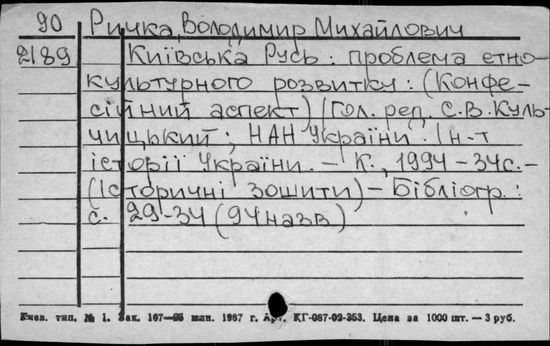 90 Ричка, Володимир Михайлович
2189 Київська Русь : проблема етно-
культурного розвитку : (Конфе-
сійний аспект) / Гол. ред. С.В. Куль-
чицький ; НАН України. Ін-т
історії України. – К., 1994 – 34с. –
(Історичні зошити) – Бібліогр. :
с. 29-34 (94 назв)
Киев. тип. № 1. Зак. 167—25 млн. 1987 г. Арт. КГ-087-02-353. Цена за 1000 шт. — 3 руб.